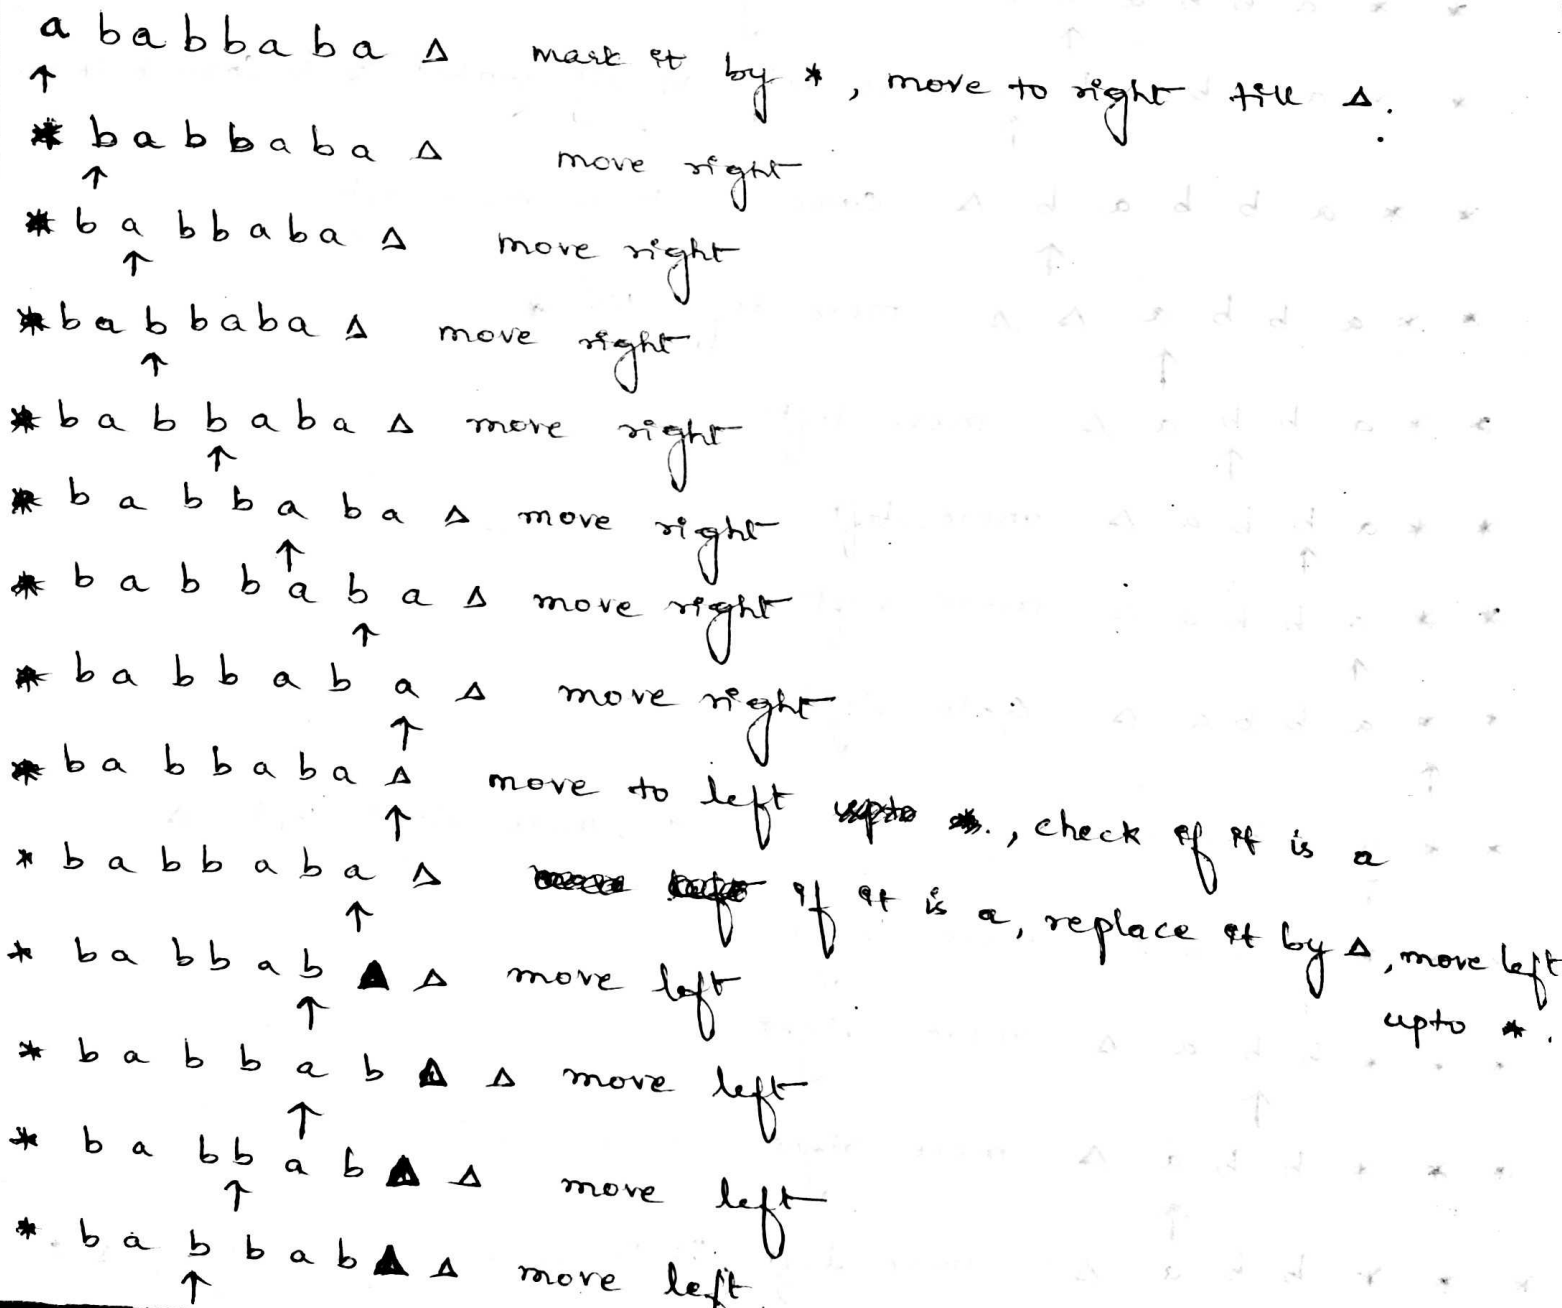 a b a b b a b a Δ mark it by *, move to right till Δ.
↑
* b a b b a b a Δ move right
↑
* b a b b a b a Δ move right
↑
* b a b b a b a Δ move right
↑
* b a b b a b a Δ move right
↑
* b a b b a b a Δ move right
↑
* b a b b a b a Δ move right
↑
* b a b b a b a Δ move right
↑
* b a b b a b a Δ move to left upto *., check if it is a
↑
* b a b b a b a Δ if it is a, replace it by Δ, move left
↑
upto *.
* b a b b a b Δ Δ move left
↑
* b a b b a b Δ Δ move left
↑
* b a b b a b Δ Δ move left
↑
* b a b b a b Δ Δ move left.
↑